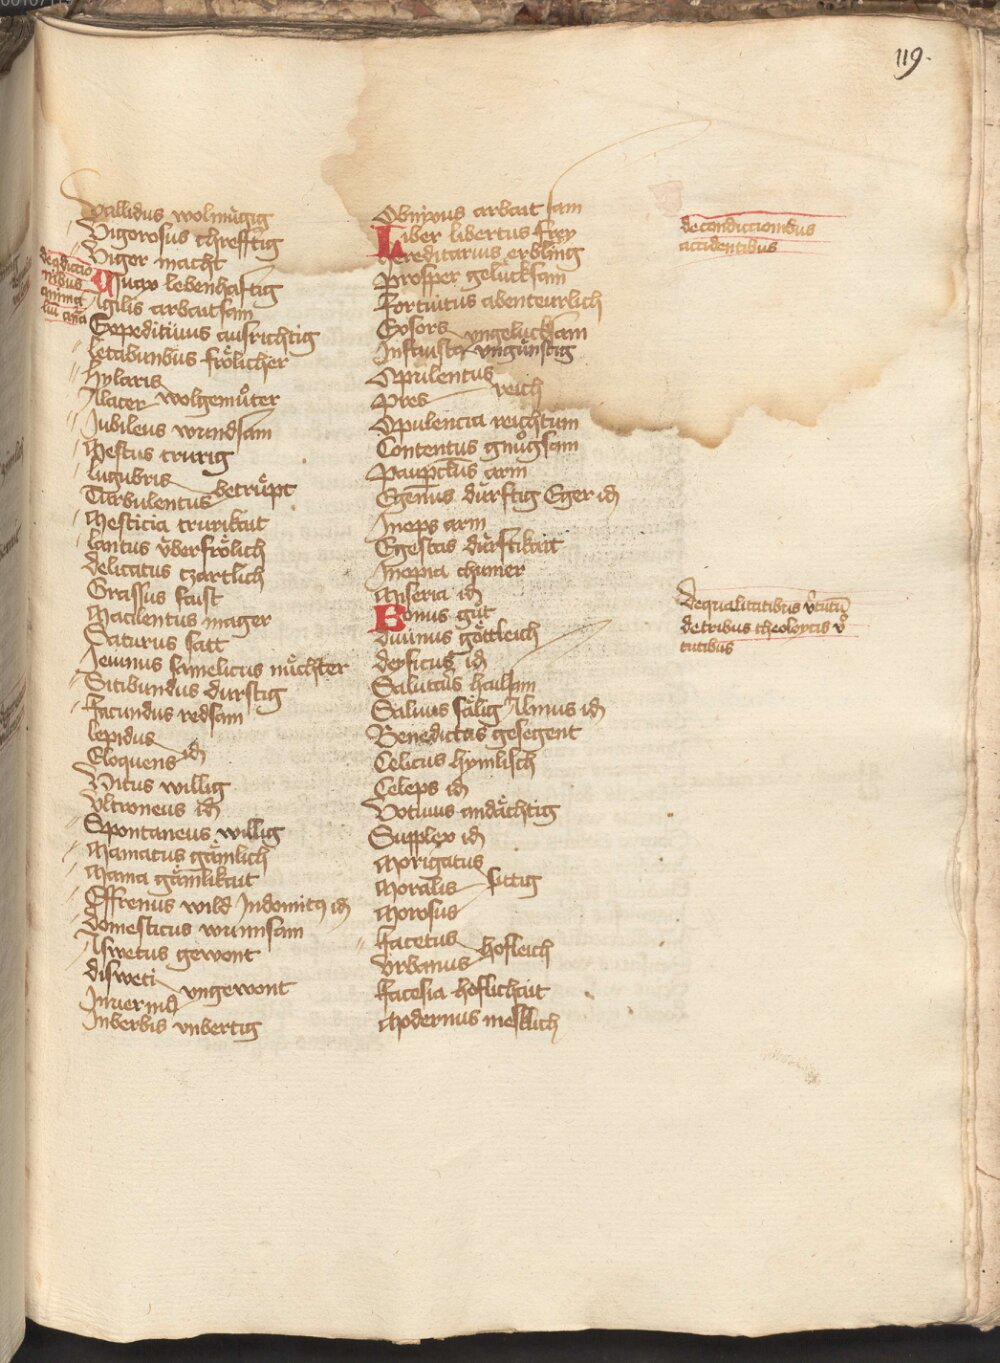 119.
Vallidus wolmùgig
Vigorosus chrefftig
Viger macht
deadiectio
nibus
anima
lui cau͞a
Viuax lebenhaftig
Agilis arbaitsam
Expeditiuus ausrichtig
Letabundus frölicher
Hylaris
Alacer wolgemuͦter
Jubileus wundsam
Mestus trurig
Lugubris
Turbulentus betruͤpt
Mesticia trurikait
Lautus v̈berfrölich
Delicatus czärtlich
Grassus faist
Macilentus mager
Saturus satt
Jeiunus famelicus nuͤchter
Sitibundus durstig
Facundus redsam
Lepidus
Eloquens id
Vitus willig
Vltroneus id
Spontaneus willig
Mamatus gaͤmlich
Mama gaͤmlikait
Effrenus wild Indomitꝯ id
Domesticus wunsam
Aswetus gewont
Disweti
ungewont
Inberbis vnbertig
Obnixus arbait sam
Liber libertus frey
Hereditarius erbling
Prosper gelücksam
Fortuitus abenteurlich
Exsors ungelucksam
Infausta vngünstig
Opulentus
Pres reich
Opulencia reichtum
Contentus gnuͦgsam
Paupclus arm
Egenus duͤrftig Eger id
Inops arm
Egestas duͤrftikait
Inopia chumer
Miseria id
Bonus guͦt
Diuinus göttleich
Deyficus id
Salutaris hailsam
Saluus sälig Almus id
Benedictus gesegent
Celicus hymlisch
Celeps id
Votiuus andächtig
Supplex id
Morigatus
Moralis sittig
Morosus
Facetus
Vrbanus hofleich
Facesia hoflichait
Modernus mesklich
de condicionibus
accidentibus
de qualitatibus v̊tutū
de tribus theologicis v̊
tutibus